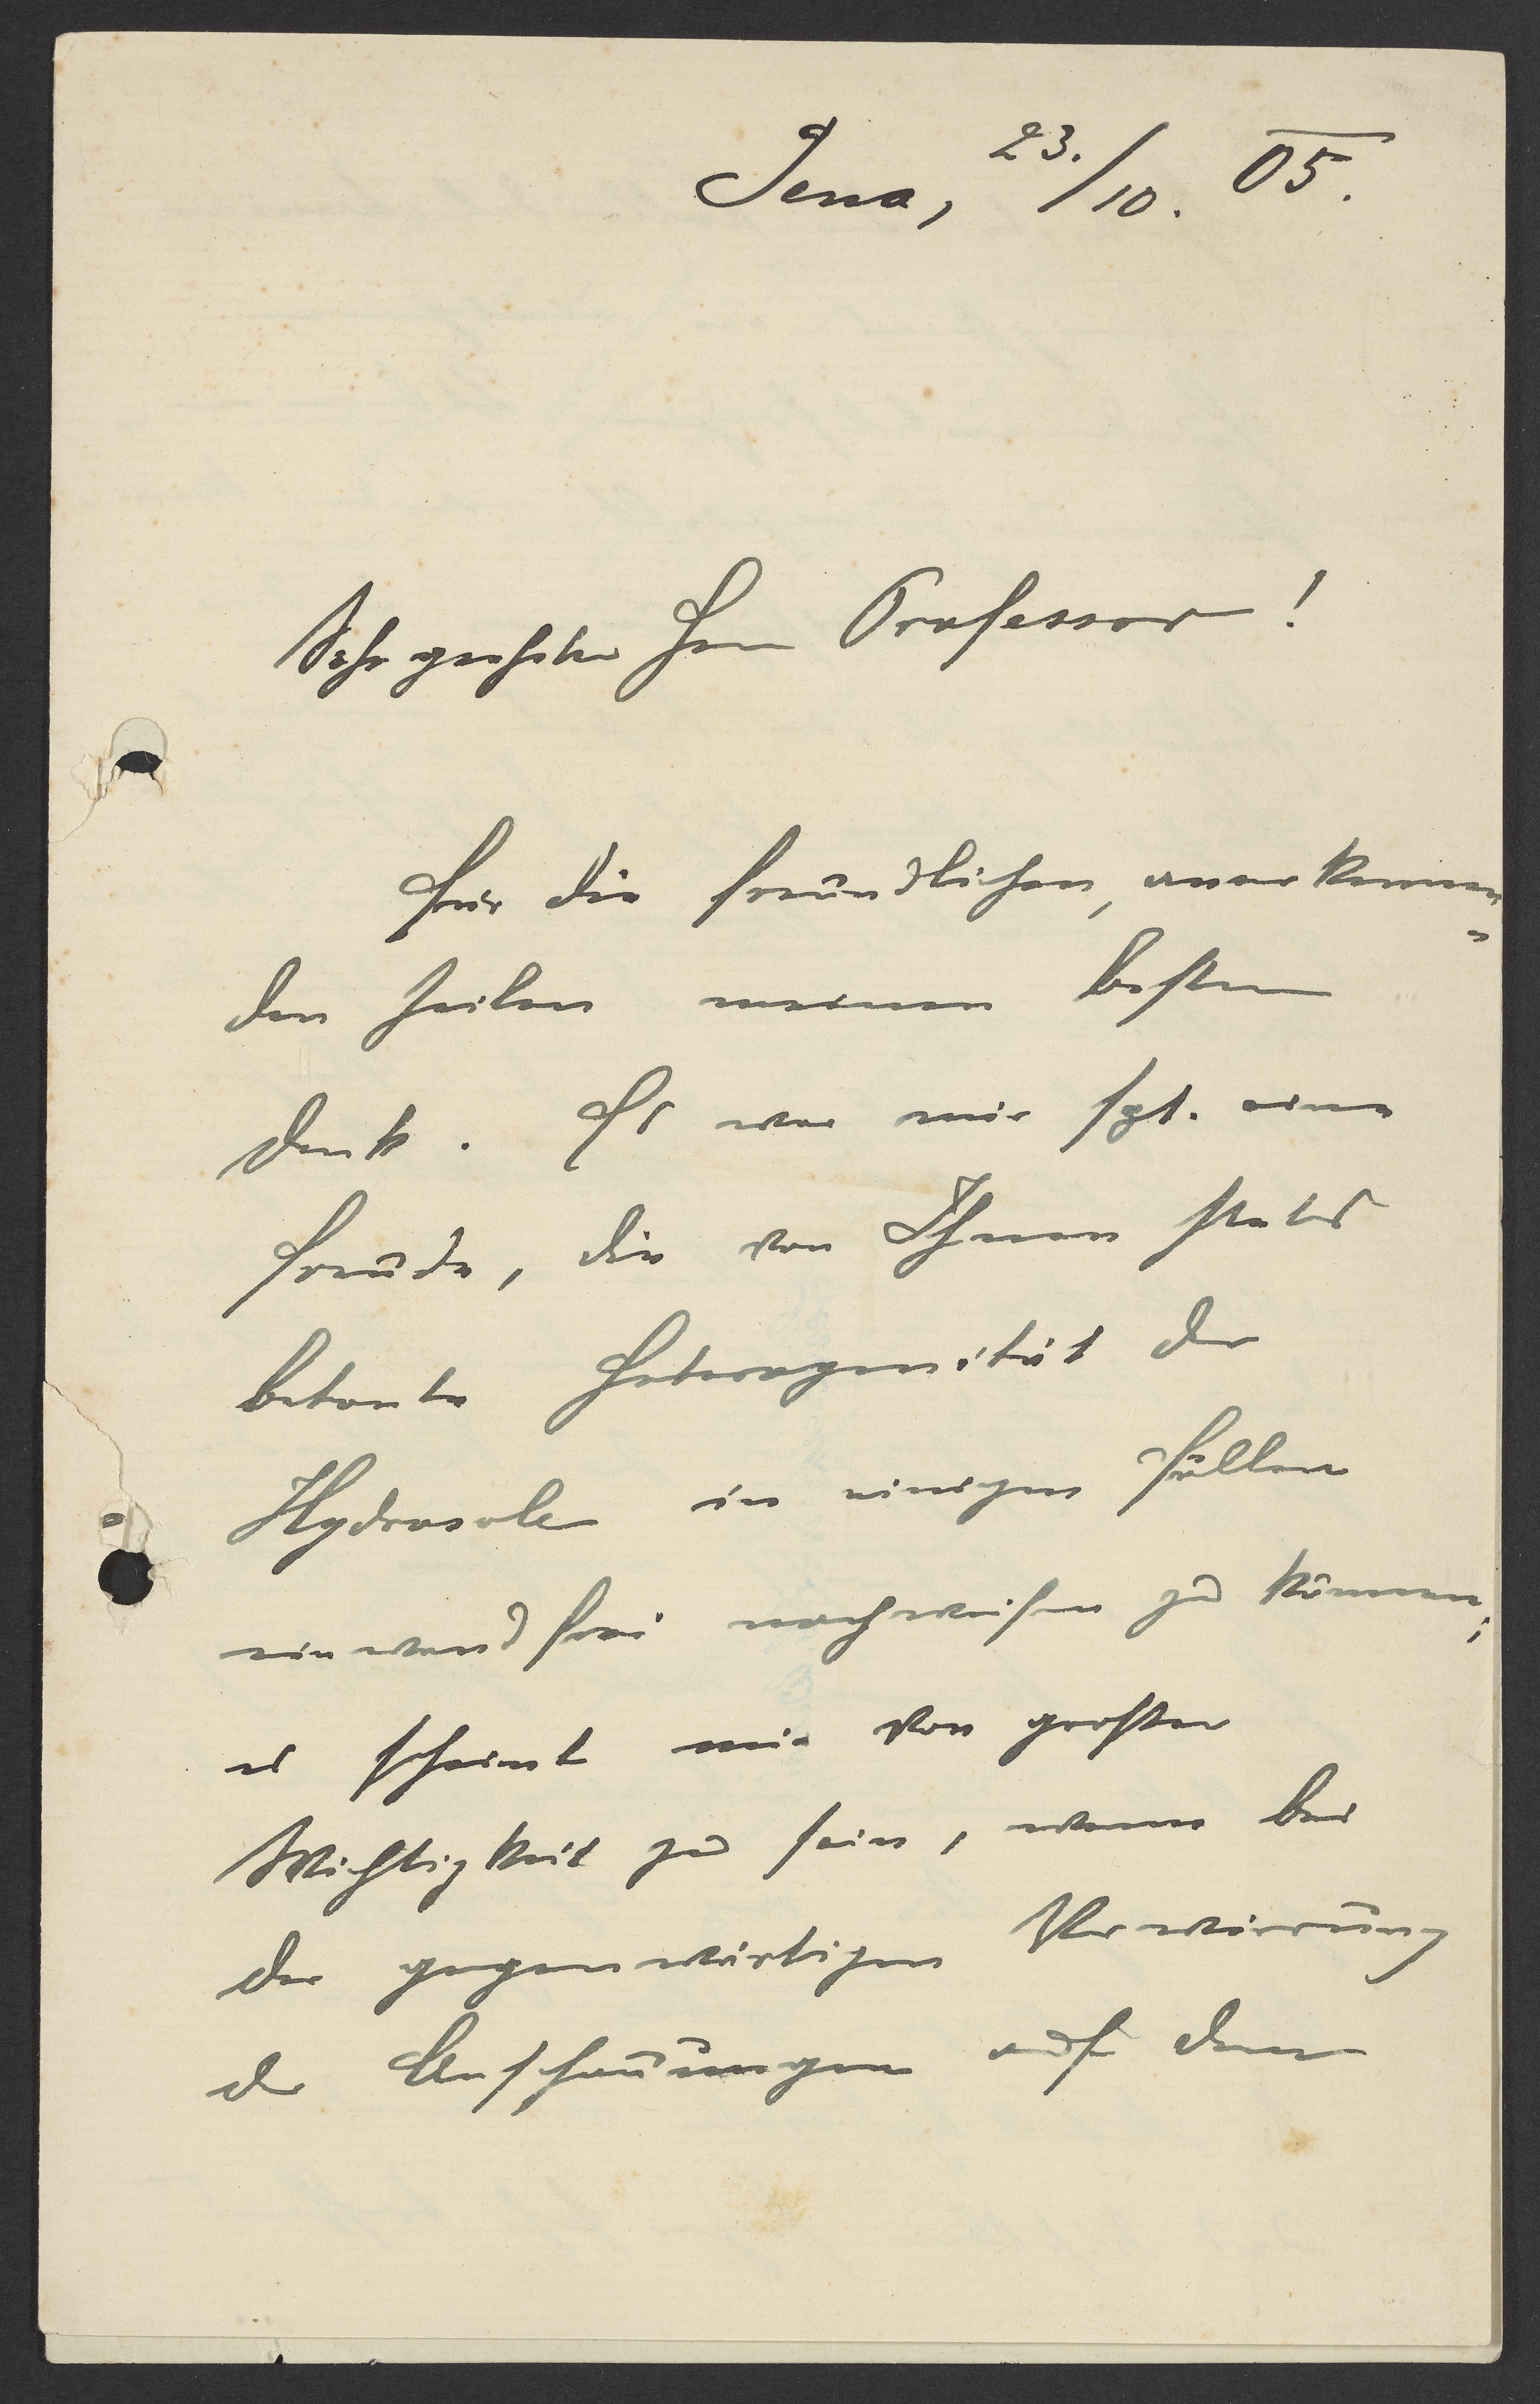 Jena, 23./10. 05.
Sehr geehrter Herr Professor!
Für die freundlichen, anerkennen=
den Zeilen meinen besten
Dank. Es war mir sgt. eine
Freude, die von Ihnen stets
betonte Heterogenität der
Hydrosole in einigen Fällen
einwandfrei nachweisen zu können;
es scheint mir von großter
Wichtigkeit zu sein, wenn bei
der gegenwärtigen Verwirrung
der Anschauungen auf dem